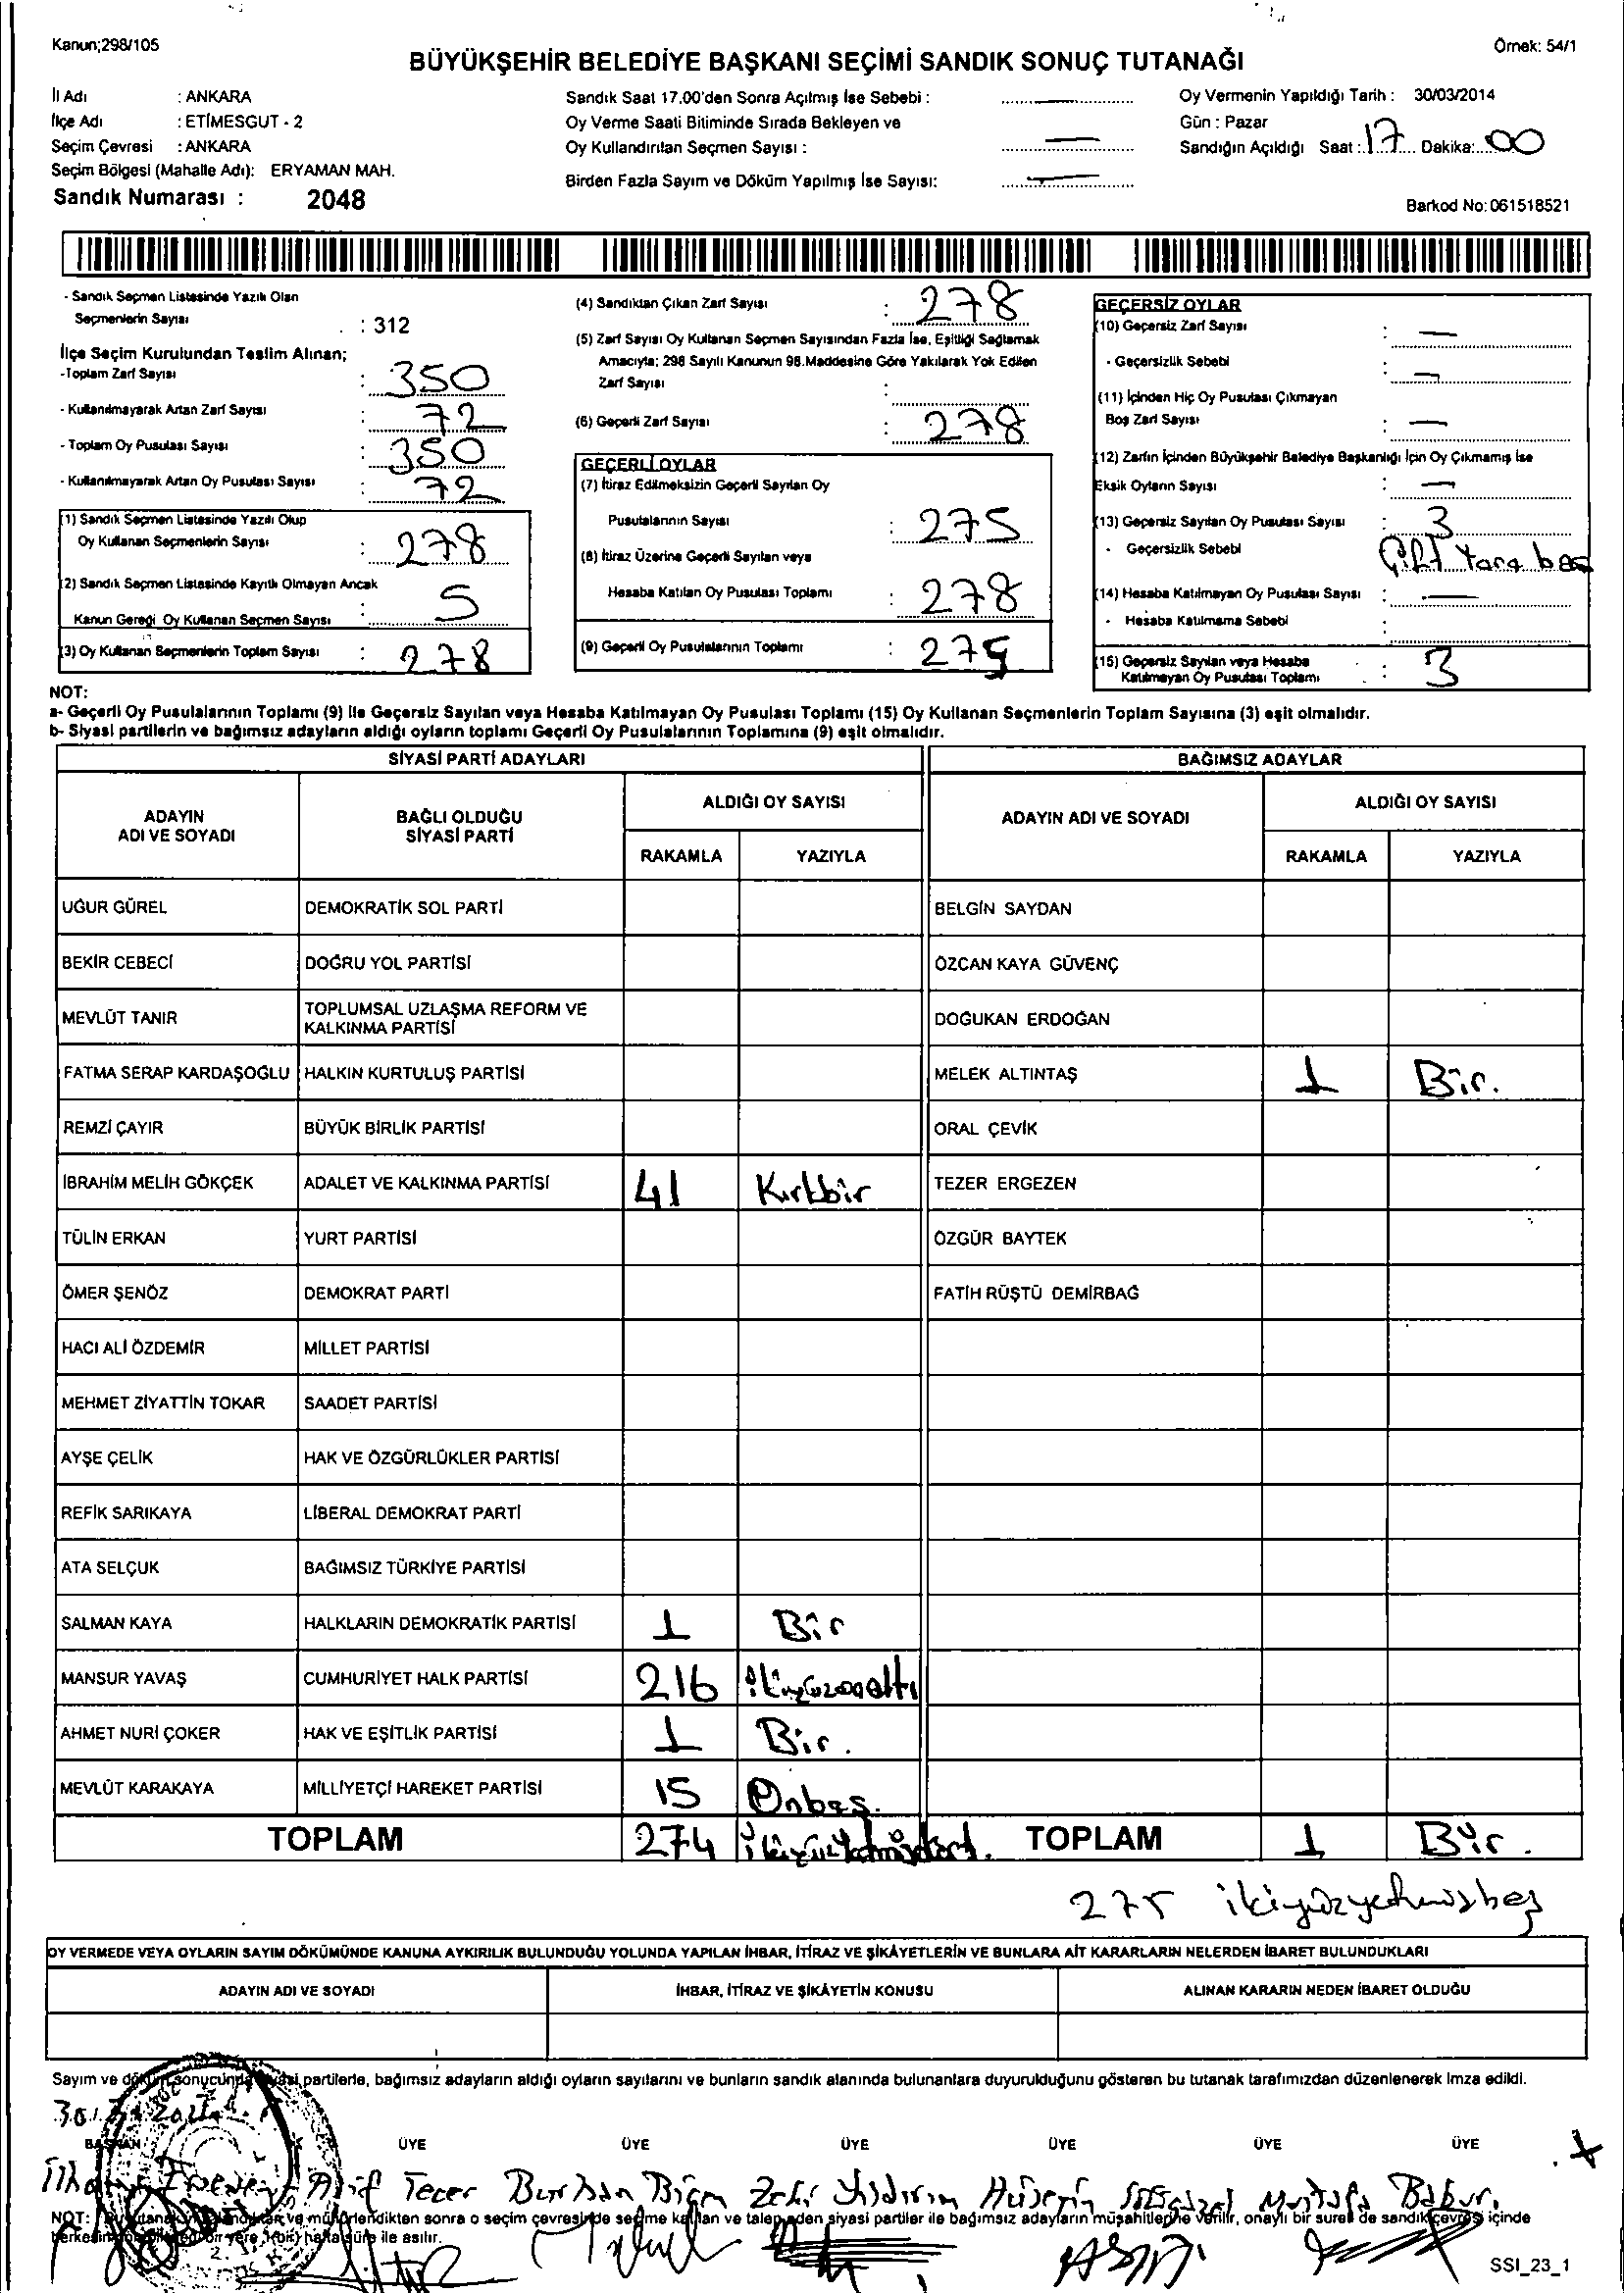 Kanun;298/105
Örnek: 54/1
BÜYÜKŞEHİR BELEDİYE BAŞKANI SEÇİMİ SANDIK SONUÇ TUTANAĞI
İl Adı : ANKARA
İlçe Adı : ETİMESGUT - 2
Seçim Çevresi : ANKARA
Seçim Bölgesi (Mahalle Adı): ERYAMAN MAH.
Sandık Numarası : 2048
Sandık Saat 17.00'den Sonra Açılmış İse Sebebi :
Oy Verme Saati Bitiminde Sırada Bekleyen ve
Oy Kullandırılan Seçmen Sayısı :
Birden Fazla Sayım ve Döküm Yapılmış İse Sayısı:
Oy Vermenin Yapıldığı Tarih : 30/03/2014
Gün : Pazar
Sandığın Açıldığı Saat : 17 Dakika: 00
Barkod No: 061518521
- Sandık Seçmen Listesinde Yazılı Olan
Seçmenlerin Sayısı : 312
İlçe Seçim Kurulundan Teslim Alınan;
-Toplam Zarf Sayısı : 350
- Kullanılmayarak Artan Zarf Sayısı : 72
- Toplam Oy Pusulası Sayısı : 350
- Kullanılmayarak Artan Oy Pusulası Sayısı : 72
(1) Sandık Seçmen Listesinde Yazılı Olup
Oy Kullanan Seçmenlerin Sayısı : 278
(2) Sandık Seçmen Listesinde Kayıtlı Olmayan Ancak
Kanun Gereği Oy Kullanan Seçmen Sayısı : 5
(3) Oy Kullanan Seçmenlerin Toplam Sayısı : 278
(4) Sandıktan Çıkan Zarf Sayısı : 278
(5) Zarf Sayısı Oy Kullanan Seçmen Sayısından Fazla İse, Eşitliği Sağlamak
Amacıyla; 298 Sayılı Kanunun 98.Maddesine Göre Yakılarak Yok Edilen
Zarf Sayısı :
(6) Geçerli Zarf Sayısı : 278
GEÇERLİ OYLAR
(7) İtiraz Edilmeksizin Geçerli Sayılan Oy
Pusulalarının Sayısı : 275
(8) İtiraz Üzerine Geçerli Sayılan veya
Hesaba Katılan Oy Pusulası Toplamı : 278
(9) Geçerli Oy Pusulalarının Toplamı : 275
GEÇERSİZ OYLAR
(10) Geçersiz Zarf Sayısı : —
- Geçersizlik Sebebi : —
(11) İçinden Hiç Oy Pusulası Çıkmayan
Boş Zarf Sayısı : —
(12) Zarfın İçinden Büyükşehir Belediye Başkanlığı İçin Oy Çıkmamış İse
Eksik Oyların Sayısı : —
(13) Geçersiz Sayılan Oy Pusulası Sayısı : 3
- Geçersizlik Sebebi Çift
(14) Hesaba Katılmayan Oy Pusulası Sayısı : —
- Hesaba Katılmama Sebebi :
(15) Geçersiz Sayılan veya Hesaba
Katılmayan Oy Pusulası Toplamı : 3
NOT:
a- Geçerli Oy Pusulalarının Toplamı (9) ile Geçersiz Sayılan veya Hesaba Katılmayan Oy Pusulası Toplamı (15) Oy Kullanan Seçmenlerin Toplam Sayısına (3) eşit olmalıdır.
b- Siyasi partilerin ve bağımsız adayların aldığı oyların toplamı Geçerli Oy Pusulalarının Toplamına (9) eşit olmalıdır.
SİYASİ PARTİ ADAYLARI
BAĞIMSIZ ADAYLAR
ADAYIN ADI VE SOYADI
BAĞLI OLDUĞU SİYASİ PARTİ
ALDIĞI OY SAYISI
RAKAMLA YAZIYLA
ADAYIN ADI VE SOYADI
ALDIĞI OY SAYISI
RAKAMLA YAZIYLA
UĞUR GÜREL DEMOKRATİK SOL PARTİ BELGİN SAYDAN
BEKİR CEBECİ DOĞRU YOL PARTİSİ ÖZCAN KAYA GÜVENÇ
MEVLÜT TANIR TOPLUMSAL UZLAŞMA REFORM VE KALKINMA PARTİSİ DOĞUKAN ERDOĞAN
FATMA SERAP KARDAŞOĞLU HALKIN KURTULUŞ PARTİSİ MELEK ALTINTAŞ 1 Bir.
REMZİ ÇAYIR BÜYÜK BİRLİK PARTİSİ ORAL ÇEVİK
İBRAHİM MELİH GÖKÇEK ADALET VE KALKINMA PARTİSİ 41 Kırkbir TEZER ERGEZEN
TÜLİN ERKAN YURT PARTİSİ ÖZGÜR BAYTEK
ÖMER ŞENÖZ DEMOKRAT PARTİ FATİH RÜŞTÜ DEMİRBAĞ
HACI ALİ ÖZDEMİR MİLLET PARTİSİ
MEHMET ZİYATTİN TOKAR SAADET PARTİSİ
AYŞE ÇELİK HAK VE ÖZGÜRLÜKLER PARTİSİ
REFİK SARIKAYA LİBERAL DEMOKRAT PARTİ
ATA SELÇUK BAĞIMSIZ TÜRKİYE PARTİSİ
SALMAN KAYA HALKLARIN DEMOKRATİK PARTİSİ 1 Bir
MANSUR YAVAŞ CUMHURİYET HALK PARTİSİ 216 ikiyüzonaltı
AHMET NURİ ÇOKER HAK VE EŞİTLİK PARTİSİ 1 Bir.
MEVLÜT KARAKAYA MİLLİYETÇİ HAREKET PARTİSİ 15 Onbeş.
TOPLAM 274 ikiyüzyetmişdört. TOPLAM 1 Bir.
275 ikiyüzyetmişbeş
OY VERMEDE VEYA OYLARIN SAYIM DÖKÜMÜNDE KANUNA AYKIRILIK BULUNDUĞU YOLUNDA YAPILAN İHBAR, İTİRAZ VE ŞİKÂYETLERİN VE BUNLARA AİT KARARLARIN NELERDEN İBARET BULUNDUKLARI
ADAYIN ADI VE SOYADI İHBAR, İTİRAZ VE ŞİKÂYETİN KONUSU ALINAN KARARIN NEDEN İBARET OLDUĞU
Sayım ve döküm sonucunda siyasi partilerle, bağımsız adayların aldığı oyların sayılarını ve bunların sandık alanında bulunanlara duyurulduğunu gösteren bu tutanak tarafımızdan düzenlenerek imza edildi.
BAŞKAN ÜYE ÜYE ÜYE ÜYE ÜYE ÜYE
Arif Tecer Burhan Zeki Yıldırım Hüseyin Mustafa
ve mühürlendikten sonra o seçim çevresinde seçime katılan ve talep eden siyasi partiler ile bağımsız adayların müşahitlerine verilir, onaylı bir sureti de sandık çevresi içinde
hafta süre ile asılır.
SSI_23_1